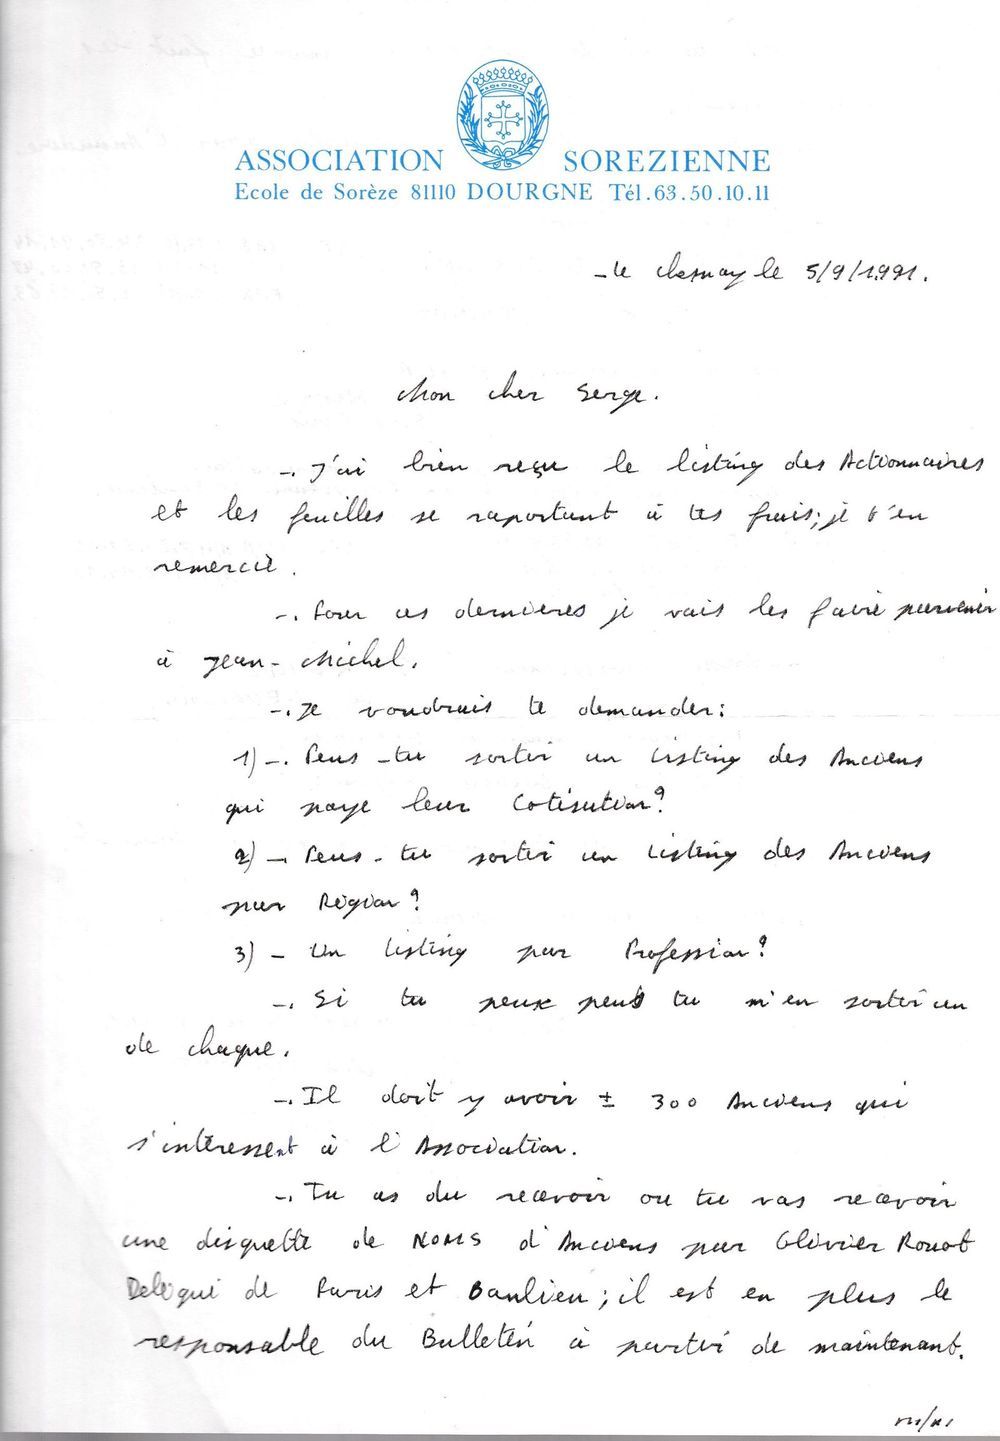 ASSOCIATION SOREZIENNE
Ecole de Sorèze 81110 DOURGNE Tél.63.50.10.11
-Le Chesnay le 5/9/1991.
Mon cher Serge.
-. J'ai bien reçu le listing des Actionnaires
et les feuilles se raportant à tes frais; je t'en
remercie.
-. Pour ces dernières je vais les faire parvenir
à Jean-Michel.
-. Je voudrais te demander:
1) -. Peus-tu sortir un listing des Anciens
qui paye leur Cotisation?
2) - Peus-tu sortir un listing des Anciens
par Région?
3) - Un listing par Profession?
-. Si tu peux peus tu m'en sortir un
de chaque.
-. Il doit y avoir ± 300 Anciens qui
s'intéressent à l'Association.
-. Tu as du recevoir ou tu vas recevoir
une disquette de NOMS d'Anciens par Olivier
Délégué de Paris et Banlieu; il est en plus le
responsable du Bulletin à partir de maintenant.